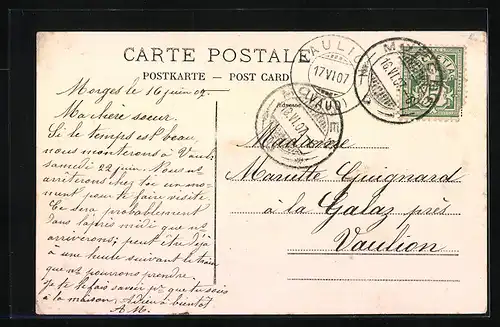 CARTE POSTALE
POSTKARTE — POST CARD
Morges le 16 juin 07.
Ma chère soeur.
Si le temps est beau
nous monterons à Vauli
samedi 22 juin. Nous nt
arrêterons chez toi un mo-
ment pour te faire visite.
Ce sera probablement
dans l'après midi que ns
arriverons; peut être déjà
à une heure suivant le train
que nt pourrons prendre.
Je te le fais savoir pr que tu sois
à la maison. Adieu à bientôt
A.M.
Adresse
Madame
Mariette Guignard
à la Galaz près
Vaulion
VAULION
17 VI 07
(VAUD)
16.VI.07
MORGES
16.VI.07